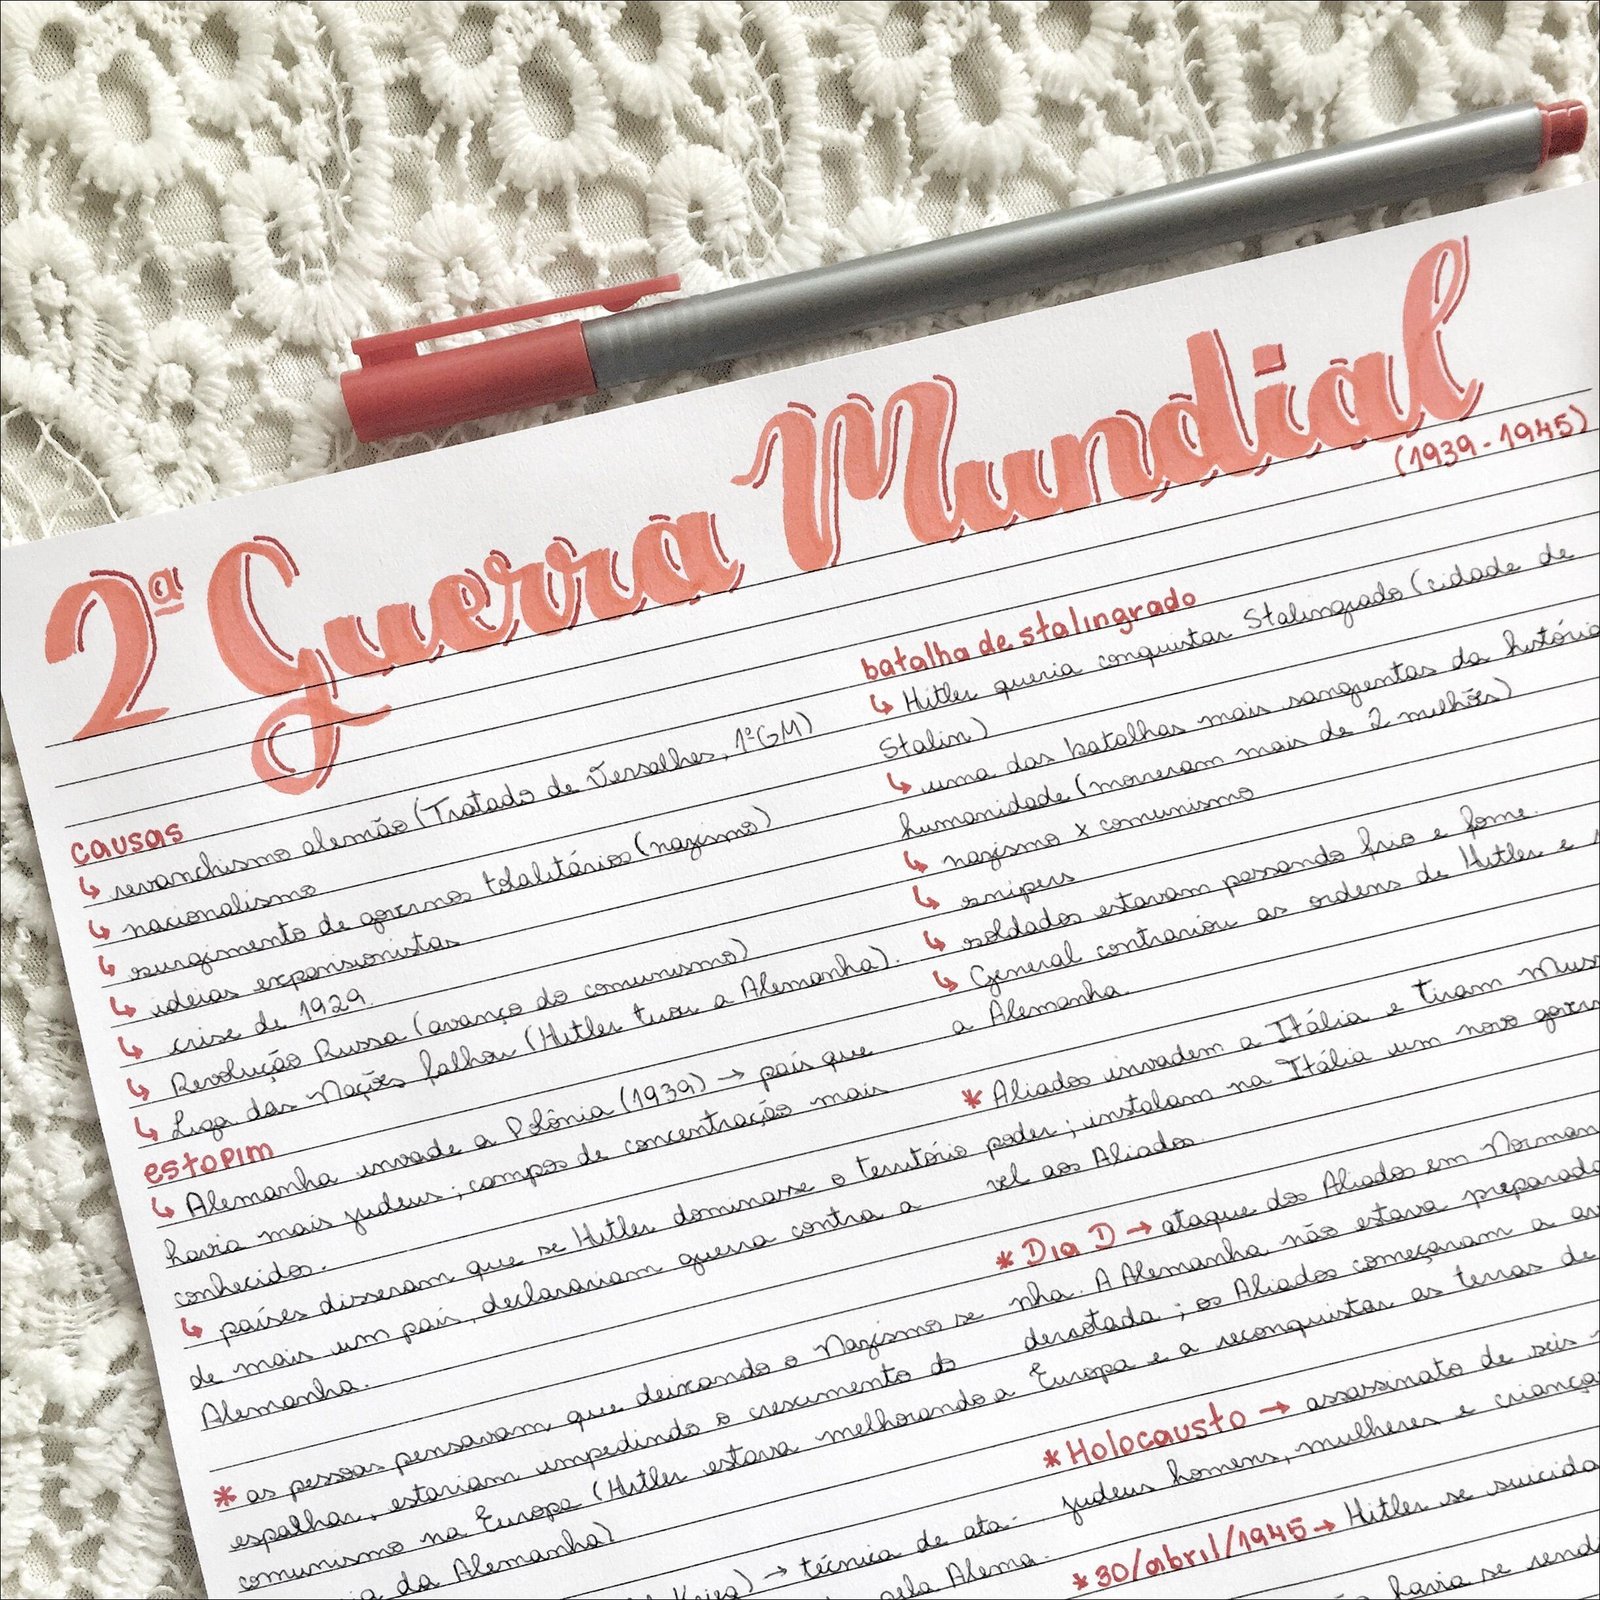 2ª Guerra Mundial
(1939-1945)
causas
↳ revanchismo alemão (Tratado de Versalhes, 1ªGM)
↳ nacionalismo
↳ surgimento de governos totalitários (nazismo)
↳ ideias expansionistas
↳ crise de 1929
↳ Revolução Russa (avanço do comunismo)
↳ Liga das Nações falhou (Hitler tirou a Alemanha).
estopim
↳ Alemanha invade a Polônia (1939) → país que
havia mais judeus; campos de concentração mais
conhecidos.
↳ países disseram que se Hitler dominasse o território
de mais um país, declarariam guerra contra a
Alemanha.
* as pessoas pensavam que deixando o Nazismo se
espalhar, estariam impedindo o crescimento do
comunismo na Europa (Hitler estava melhorando a
da Alemanha)
→ técnica de ata-
pela Alema-
batalha de stalingrado
↳ Hitler queria conquistar Stalingrado (cidade de
Stalin)
↳ uma das batalhas mais sangrentas da história
humanidade (morreram mais de 2 milhões)
↳ nazismo x comunismo
↳ snipers
↳ soldados estavam passando frio e fome.
↳ General contrariou as ordens de Hitler e
a Alemanha.
* Aliados invadem a Itália e tiram Muss
poder; instalam na Itália um novo govern
vel aos Aliados.
* Dia D → ataque dos Aliados em Norman
nha. A Alemanha não estava preparada
derrotada; os Aliados começaram a av
Europa e a reconquistar as terras de
* Holocausto → assassinato de seis
judeus homens, mulheres e criança
* 30/abril/1945 → Hitler se suicida
havia se rendi